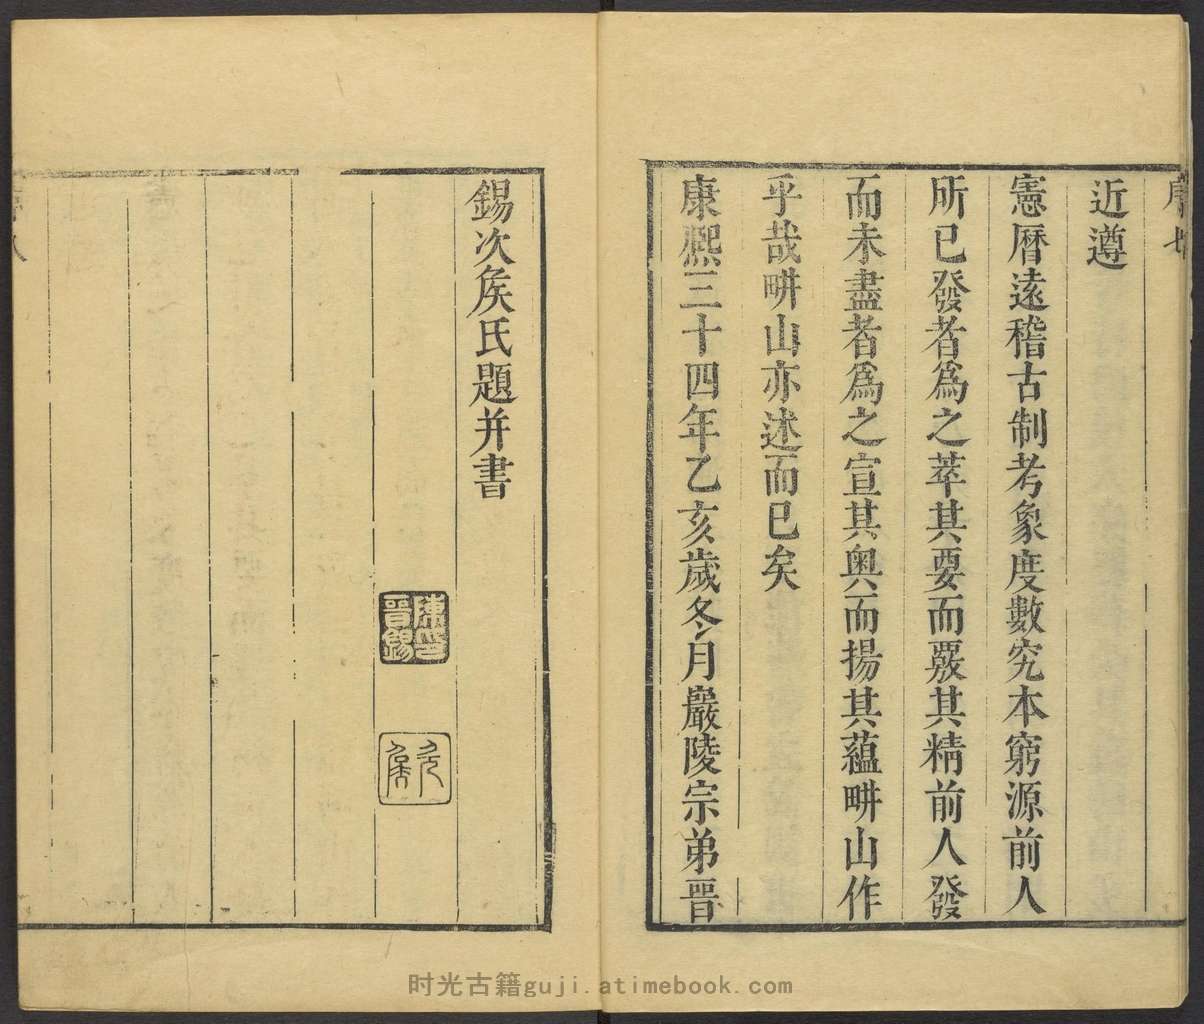 近遵
憲曆遠稽古制考象度數究本窮源前人
所已發者爲之萃其要而覈其精前人發
而未盡者爲之宣其奧而揚其蘊畊山作
乎哉畊山亦述而已矣
康熙三十四年乙亥歲冬月嚴陵宗弟晉
錫次矦氏題并書
陳晉錫印
次矦
时光古籍guji.atimebook.com